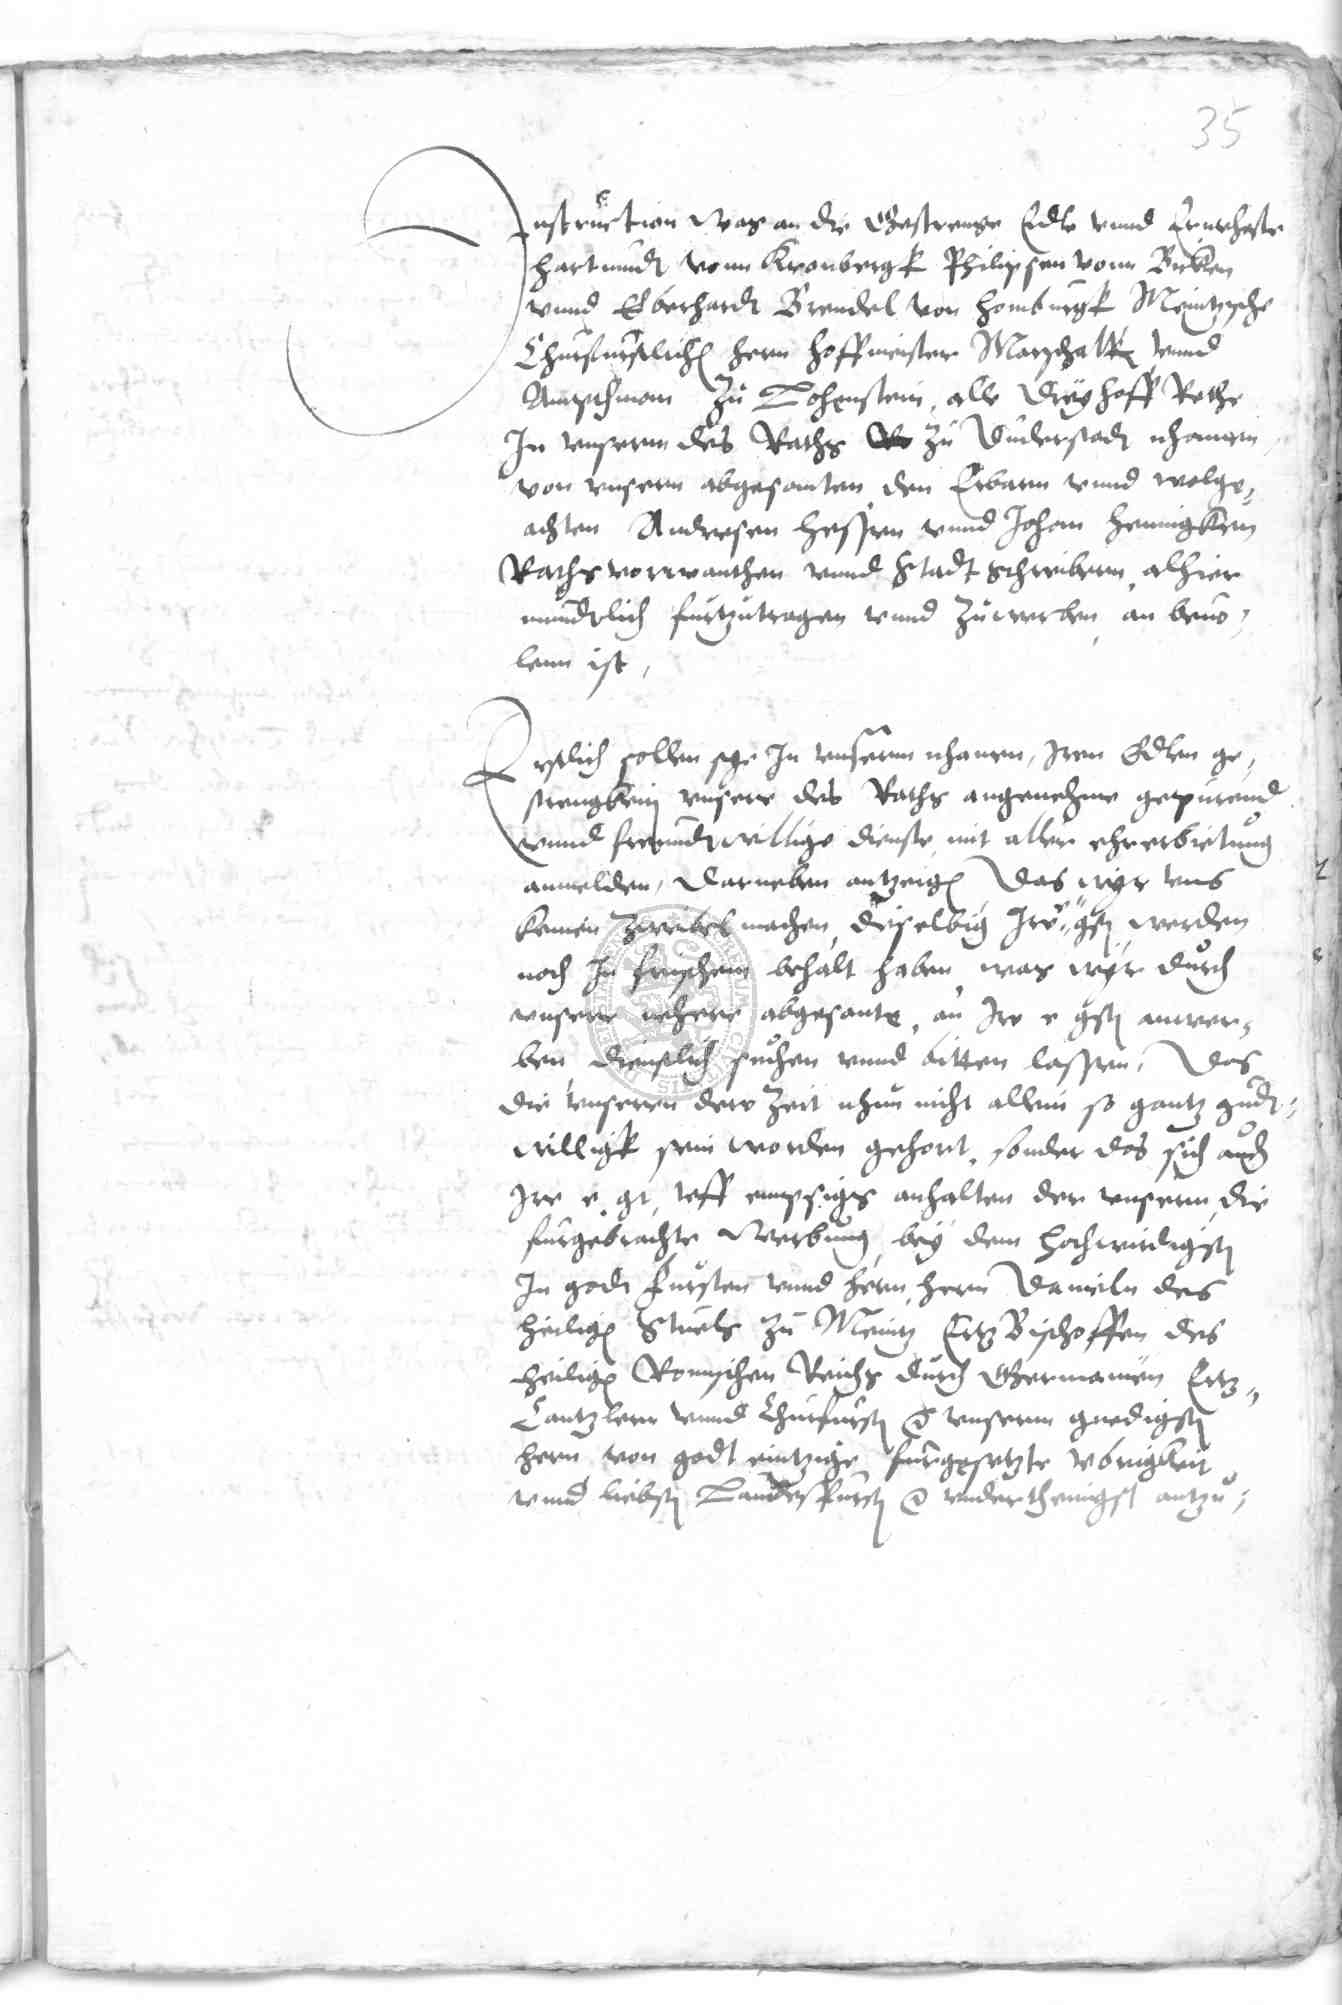 35
Instruction was an die Gestrenge Edle vnnd Ernuheste
Hartmudt vonn Kronbergk Philipsen vonn Bicken
vnnd Eberhardt Brendel von Homburgk Meintzsche
Churfurstliche hern Hoffmeister Marschalk vnnd
Amptman zu Lohenstein, alle drey Hoff Rethe
In vnserm des Raths zu Duderstadt nhamen
von vnserm abgesanten den Erbarn vnnd wolge,
achten Andresen Hessen vnnd Johan Hennigken
Raths vorwanthen vnnd Stadt Schreibern, alhier
mundtlich furtzutragen vnnd zuwerben, an beuo,
lenn ist,
Erstlich sollen sye In vnserm nhamen, Iren Edlen ge,
strengkein vnsere des Raths angenehme gepurend
vnnd freundtwillige dienste, mit aller ehrerbietung
anmelden, darneben antzeigen Das wyr vns
keinen zweibel machen, dieselbig Ire gst werden
noch In frischem behalt haben, was wyr durch
vnsere nehere abgesante, an Ire e gst anwer,
ben dienstlich suchen vnnd bitten lassen, Das
die vnseren dero Zeit nhun nicht allein so gantz gudt,
willigk sein worden gehort, sonder das sich auch
Ire e. gt, vff empsigs anhalten der vnsern, die
furgebrachte Werbung, bey dem hochwirdigst
In godt Fursten vnnd hern, hern Danieln des
heilige Stuels zu Meintz ErtzBischoffen des
heilige Romischen Reichs durch Germanien Ertz,
Cantzlern vnnd Churfurst vnserm gnedigst
hern von godt eintzige furgesetzte vbrigkeit
vnnd liebst Landesfurst vnderthenigst antzu,